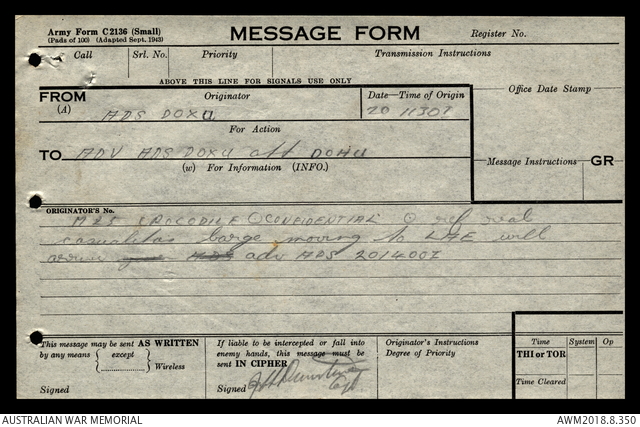 Army Form C2136 (Small)
(Pads of 100) (Adapted Sept. 1943)
MESSAGE FORM
Register No.
Call
Srl. No.
Priority
Transmission Instructions
ABOVE THIS LINE FOR SIGNALS USE ONLY
FROM
(A)
Originator
Date—Time of Origin
Office Date Stamp
ADS DOXU
20 1130Z
For Action
TO
ADV ADS DOXU att DOHU
(W) For Information (INFO.)
Message Instructions
GR
ORIGINATOR'S No.
CROCODILE CONFIDENTIAL ref
casualties barge moving to LAE will
arrive adv ADS 201400Z
This message may be sent AS WRITTEN
by any means { except }
Wireless
Signed
If liable to be intercepted or fall into
enemy hands, this message must be
sent IN CIPHER
Signed
Originator's Instructions
Degree of Priority
Time
System
Op
THI or TOR
Time Cleared
AUSTRALIAN WAR MEMORIAL
AWM2018.8.350